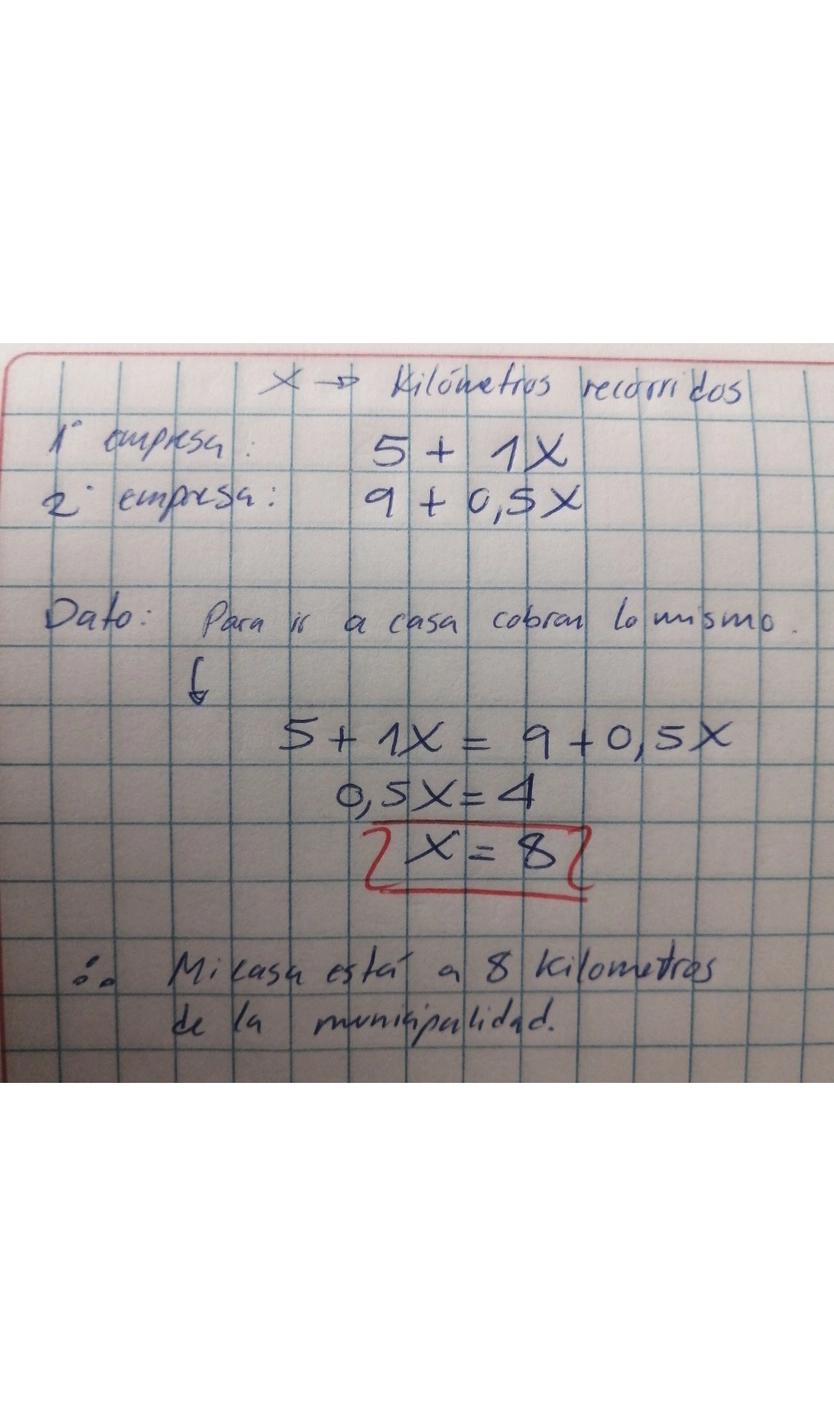 X → Kilómetros recorridos
1° empresa: 5 + 1X
2° empresa: 9 + 0,5X
Dato: Para ir a casa cobran lo mismo.
↓
5 + 1X = 9 + 0,5X
0,5X = 4
X = 8
∴ Mi casa está a 8 kilometros
de la municipalidad.